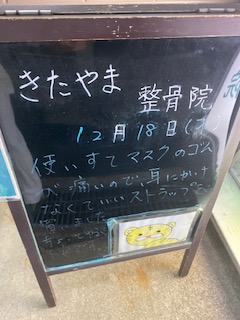 きたやま
整骨院
12月18日(
使いすてマスクのゴム
が痛いので、耳にかけ
なくていいストラップを
買いました